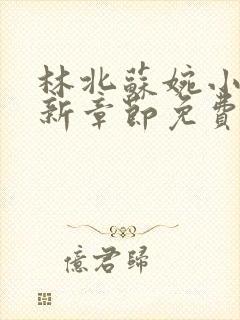 林北蘇婉小
新章節免費
億君歸